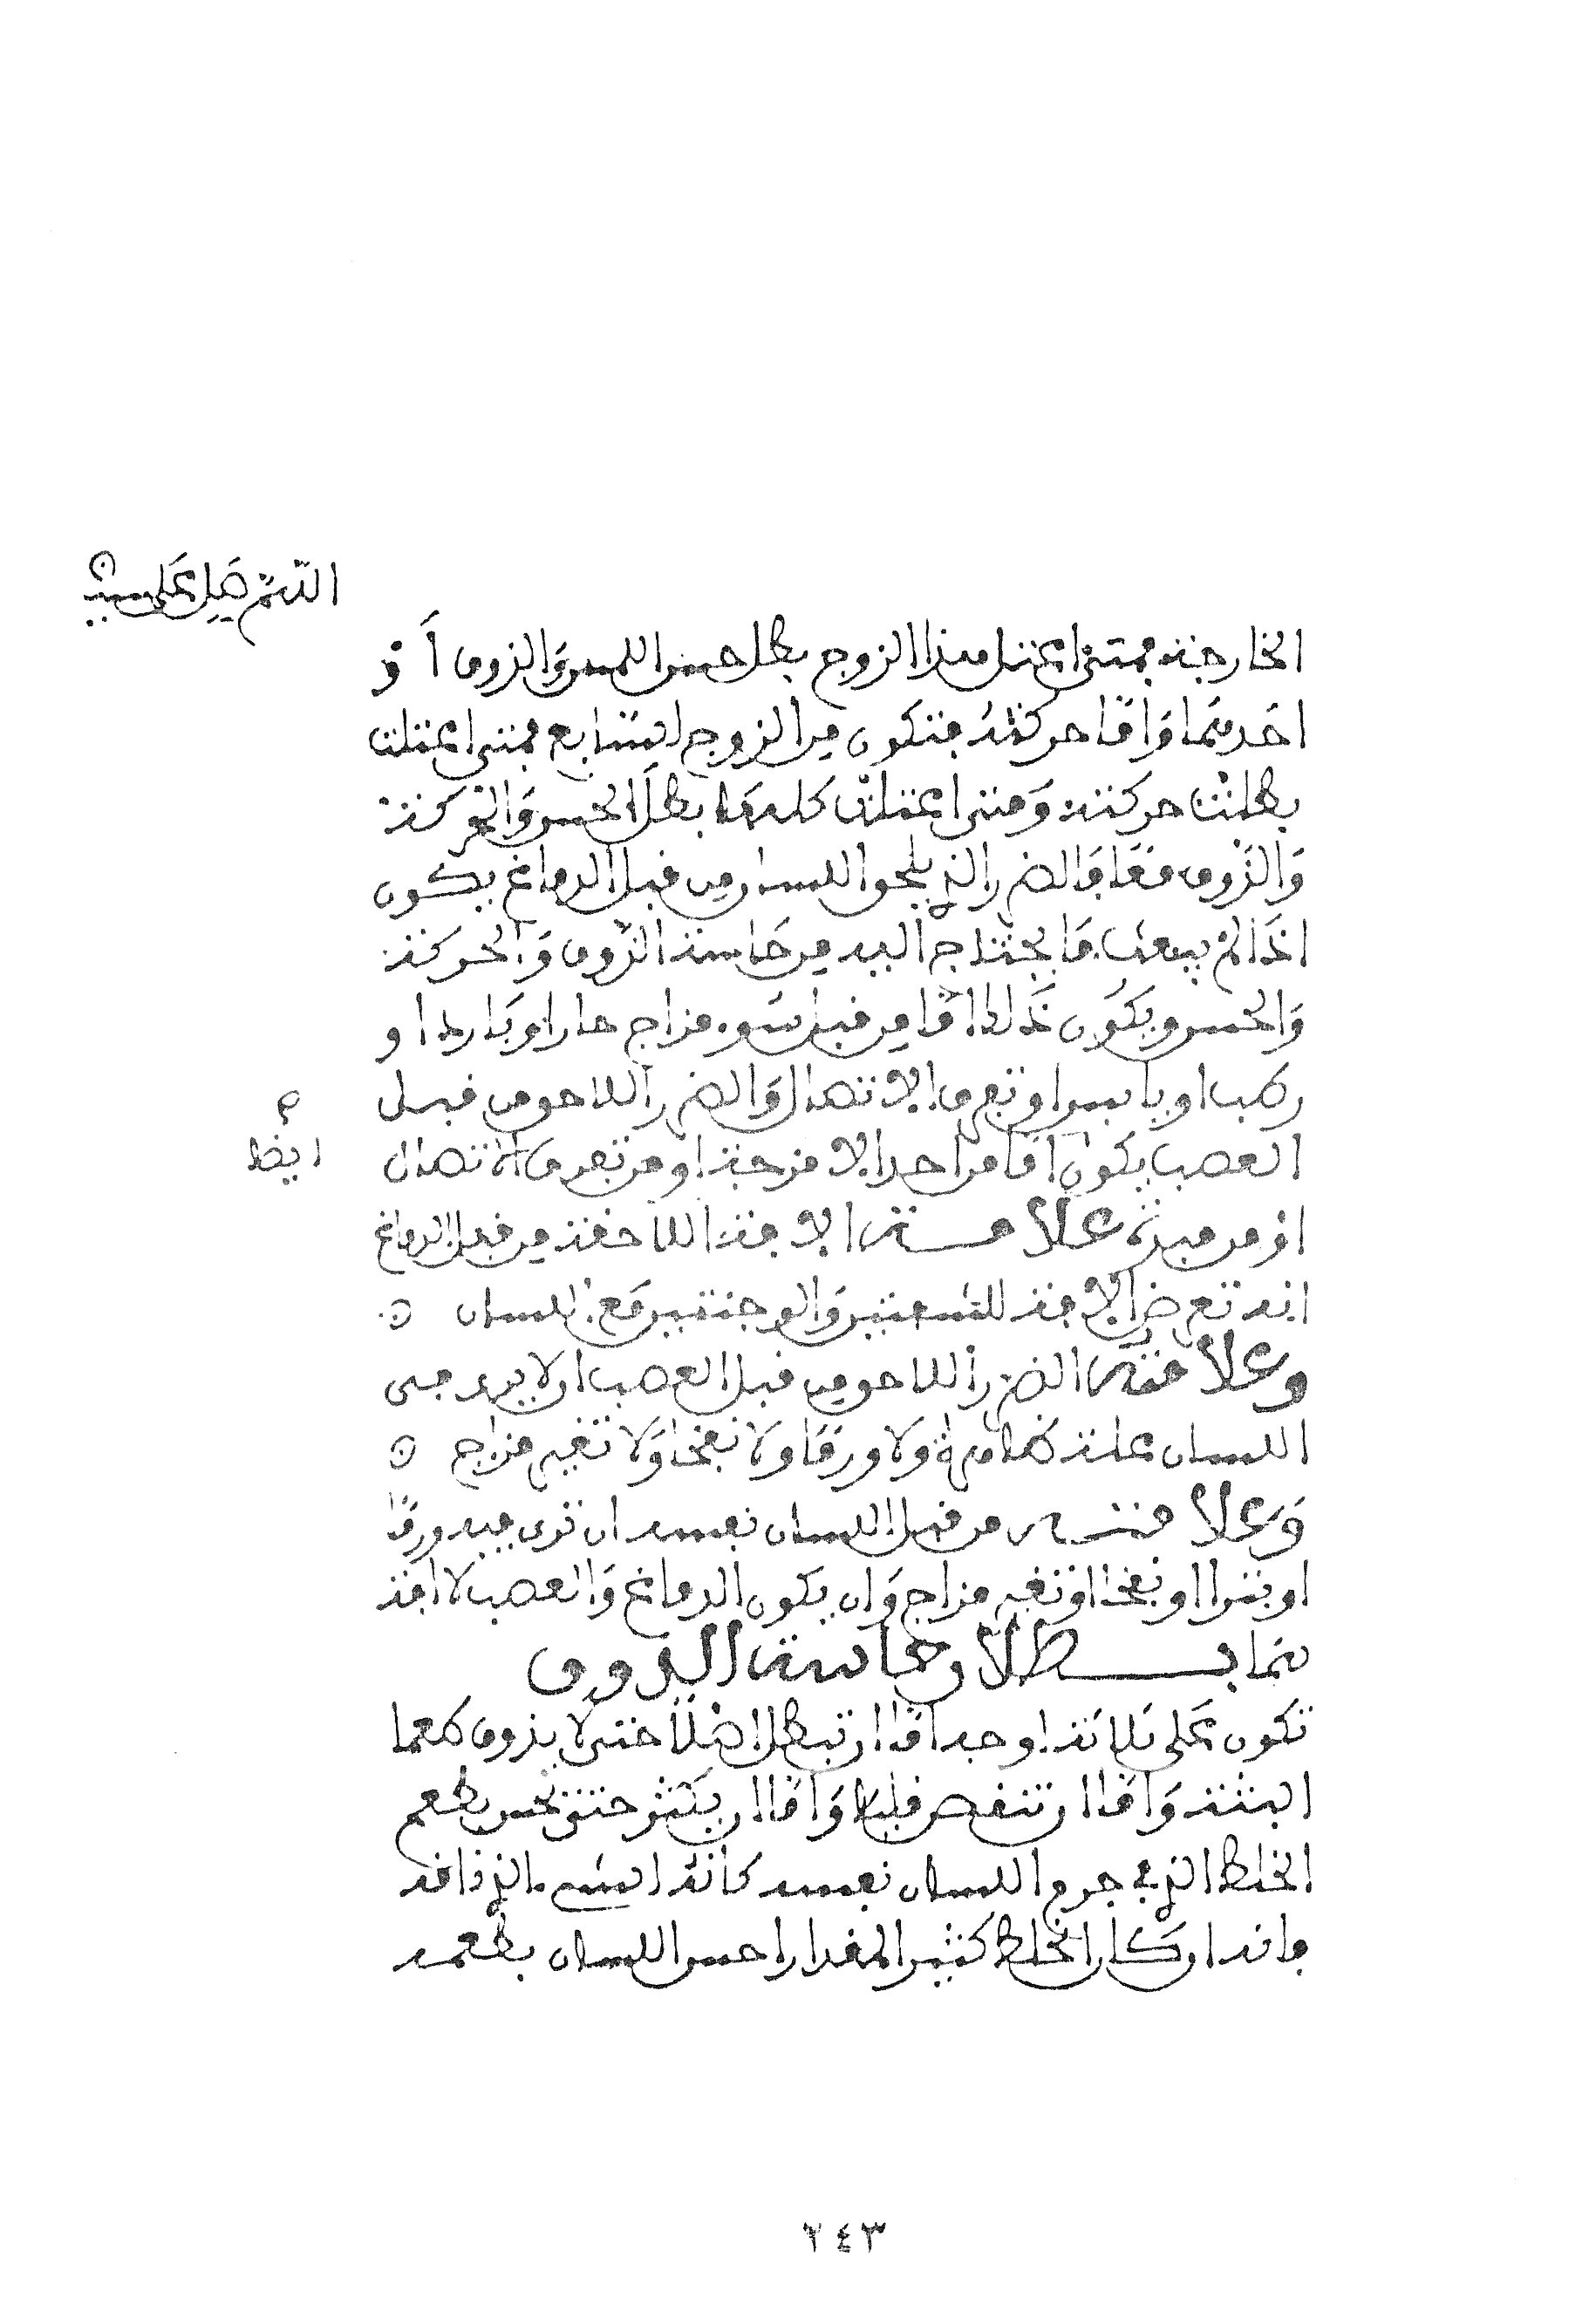 اللهم صل على سيدنا
الخارجة فمتى اعتل هذا الزوج بطل حس اللمس والذوق أو
احدهما واما حركته فتكون من الزوج السابع فمتى اعتلت
بطلت حركته ومتى اعتلت كلها بطل الحس والحركة
والذوق معا والضرر الذي يلحق اللسان من قبل الدماغ يكون
اذا لم يبعث ما يحتاج اليه من حاسة الذوق والحركة
والحس ويكون ذلك اما من قبل سوء مزاج حار او بارد او
رطب او يابس او تفرق الاتصال والضرر اللاحق من قبل
العصب يكون اما من احد الامزجة او من تفرق الاتصال
ايضا
او من علامة الافة اللاحقة من قبل الدماغ
انه تعرض الافة للشفتين والوجنتين مع اللسان
وعلامة الضرر اللاحق من قبل العصب ان لا يرى في
اللسان علة ظاهرة ولا ورما ولا نفخا ولا تغير مزاج
وعلامته من قبل اللسان نفسه ان ترى فيه ورما
او بثرا او نفخا او تغير مزاج وان يكون الدماغ والعصب لا افة
بهما بطلان حاسة الذوق
تكون على ثلاثة اوجه اما ان تبطل اصلا حتى لا يذوق طعما
البتة واما ان تنقص قليلا واما ان يكثر حتى يحس بطعم
الخلط الذي في جرم اللسان نفسه كانه الشيء الذي ذاقه
وانه ان كان الخلط كثير المقدار احس اللسان بطعمه
٢٤٣